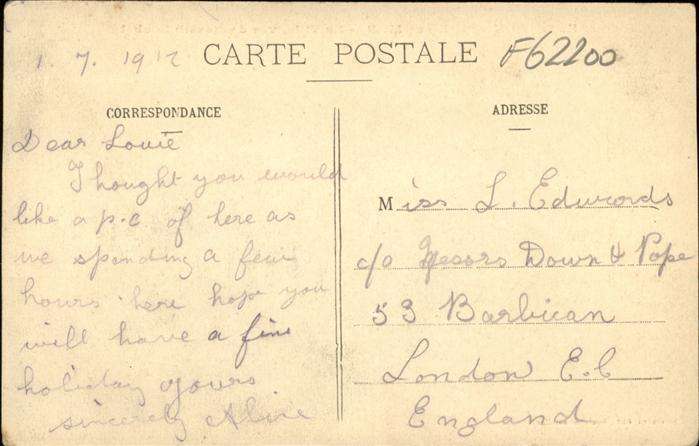 1. 7. 1912 CARTE POSTALE F62200
CORRESPONDANCE
Dear Louie
Thought you would
like a p.c of here as
we spending a few
hours here hope you
will have a fine
holiday yours
sincerely
ADRESSE
Miss L. Edwards
c/o Messrs Down & Pope
53 Barbican
London E.C
England